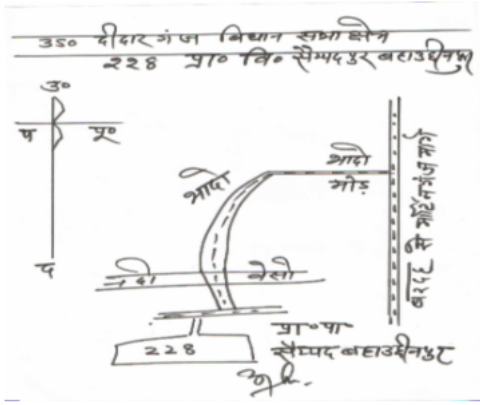 350 दीदारगंज विधान सभा क्षेत्र
228 प्रा० वि० सैय्यदपुर बहाउद्दीनपुर
उ०
प पू०
द
भादो
भादो
मोड़
बरदह से मार्टिनगंज मार्ग
नदी बेसो
प्रा० पा०
सैय्यद बहाउद्दीनपुर
228